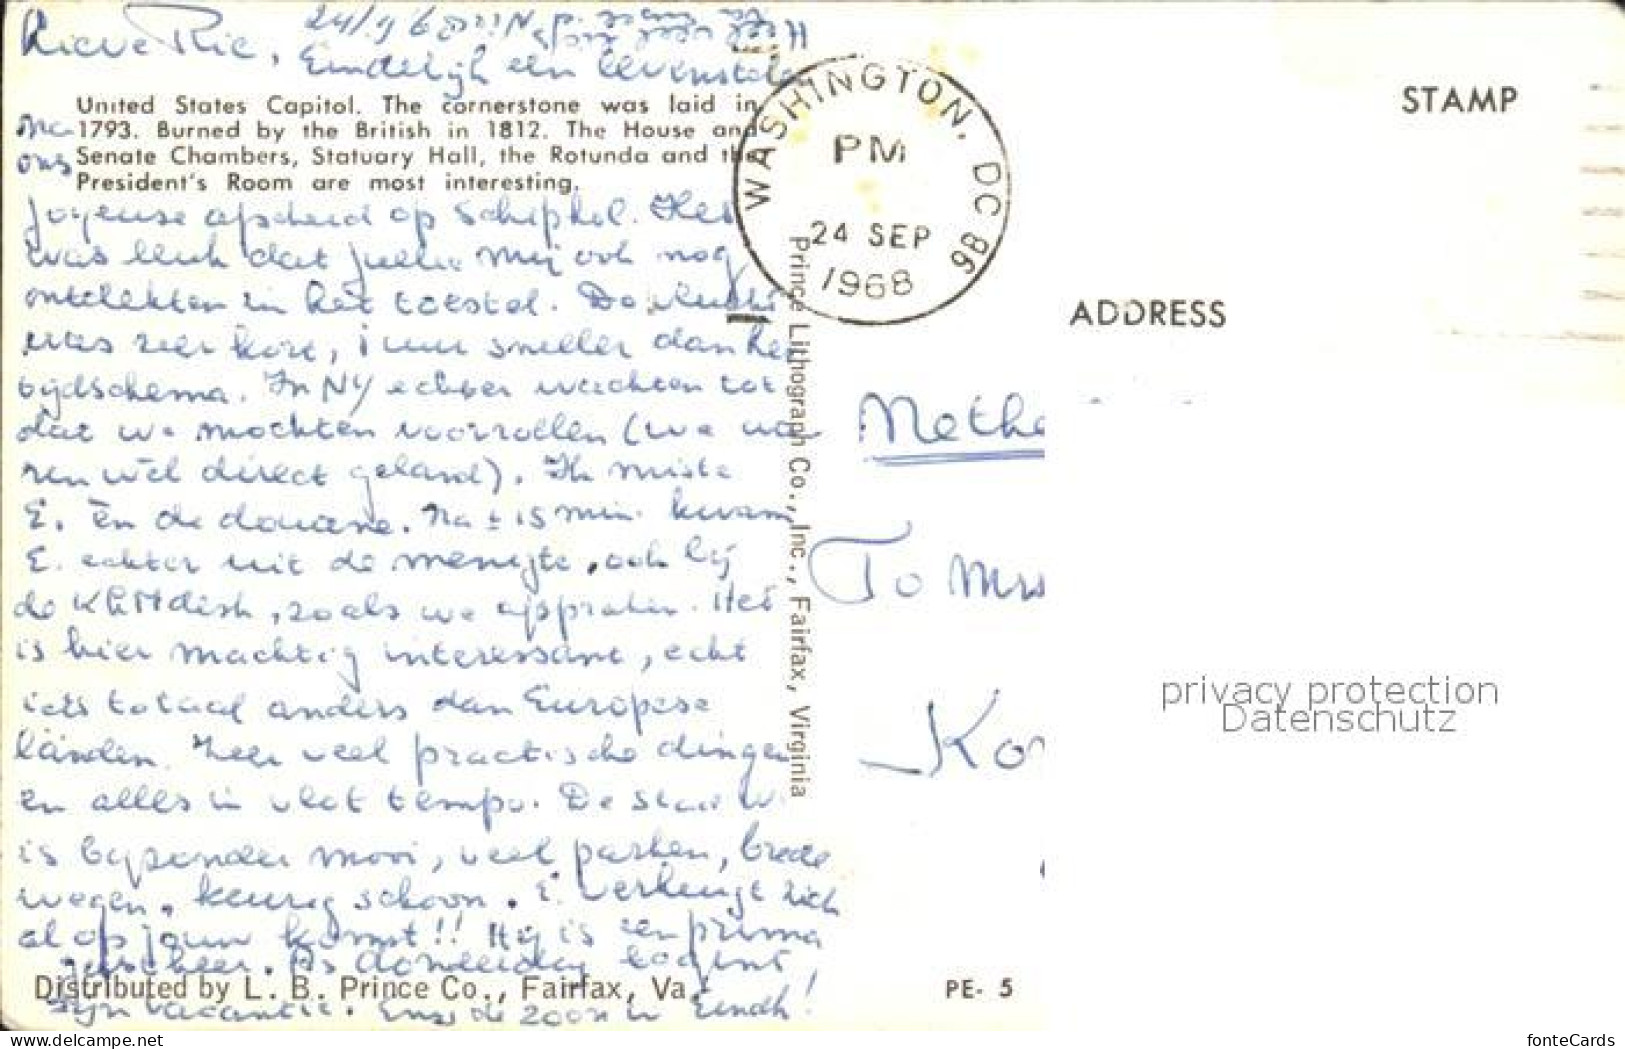 Lieve Rie, 24/9
Eindelijk een levensteken
United States Capitol. The cornerstone was laid in
na 1793. Burned by the British in 1812. The House and
ons Senate Chambers, Statuary Hall, the Rotunda and the
President's Room are most interesting.
joyeuse afscheid op Schiphol. Het
was leuk dat jullie mij ook nog
ontdekten in het toestel. De vlucht
was zeer kort, 1 uur sneller dan het
tijdschema. In NY echter wachten tot
dat we mochten voorrollen (we wa
ren wel direct geland). Ik miste
E. èn de douane. Na ± 15 min. kwam
E. echter uit de menigte, ook bij
de KLM desk, zoals we afspraken. Het
is hier machtig interessant, echt
iets totaal anders dan Europese
landen. Zeer veel practische dingen
en alles in vlot tempo. De stad W.
is bijzonder mooi, veel parken, brede
wegen, keurig schoon. E. verheugt zich
al op jouw komst!! Hij is een prima
Donderdag begint
Distributed by L. B. Prince Co., Fairfax, Va.
zijn vacantie. Eindh!
WASHINGTON, DC 98
PM
24 SEP
1968
Prince Lithograph Co., Inc., Fairfax, Virginia
STAMP
ADDRESS
Nethe
To Mrs
Ko
privacy protection
Datenschutz
PE- 5
www.delcampe.net
fonteCards